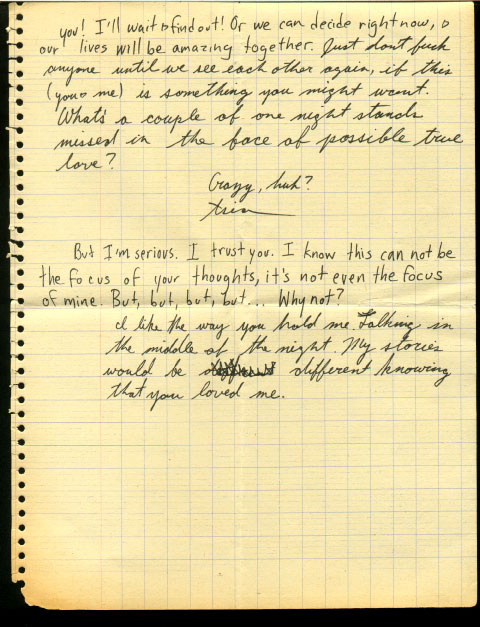 you! I'll wait to find out! Or we can decide right now,
our lives will be amazing together. Just dont fuck
anyone until we see each other again, if this
(you + me) is something you might want.
What's a couple of one night stands
missed in the face of possible true
love?
Crazy, huh?
But I'm serious. I trust you. I know this can not be
the focus of your thoughts, it's not even the focus
of mine. But, but, but, but... Why not?
I like the way you hold me. Talking in
the middle of the night. My stories
would be different knowing
that you loved me.